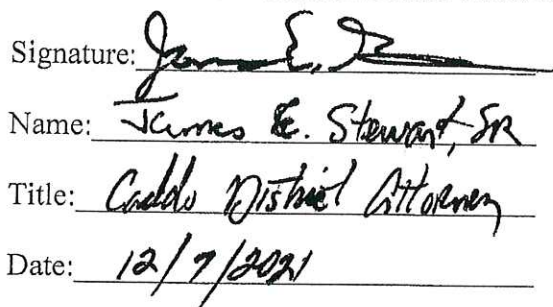 Signature: James E.
Name: James E. Stewart, SR
Title: Caddo District Attorney
Date: 12/7/2021